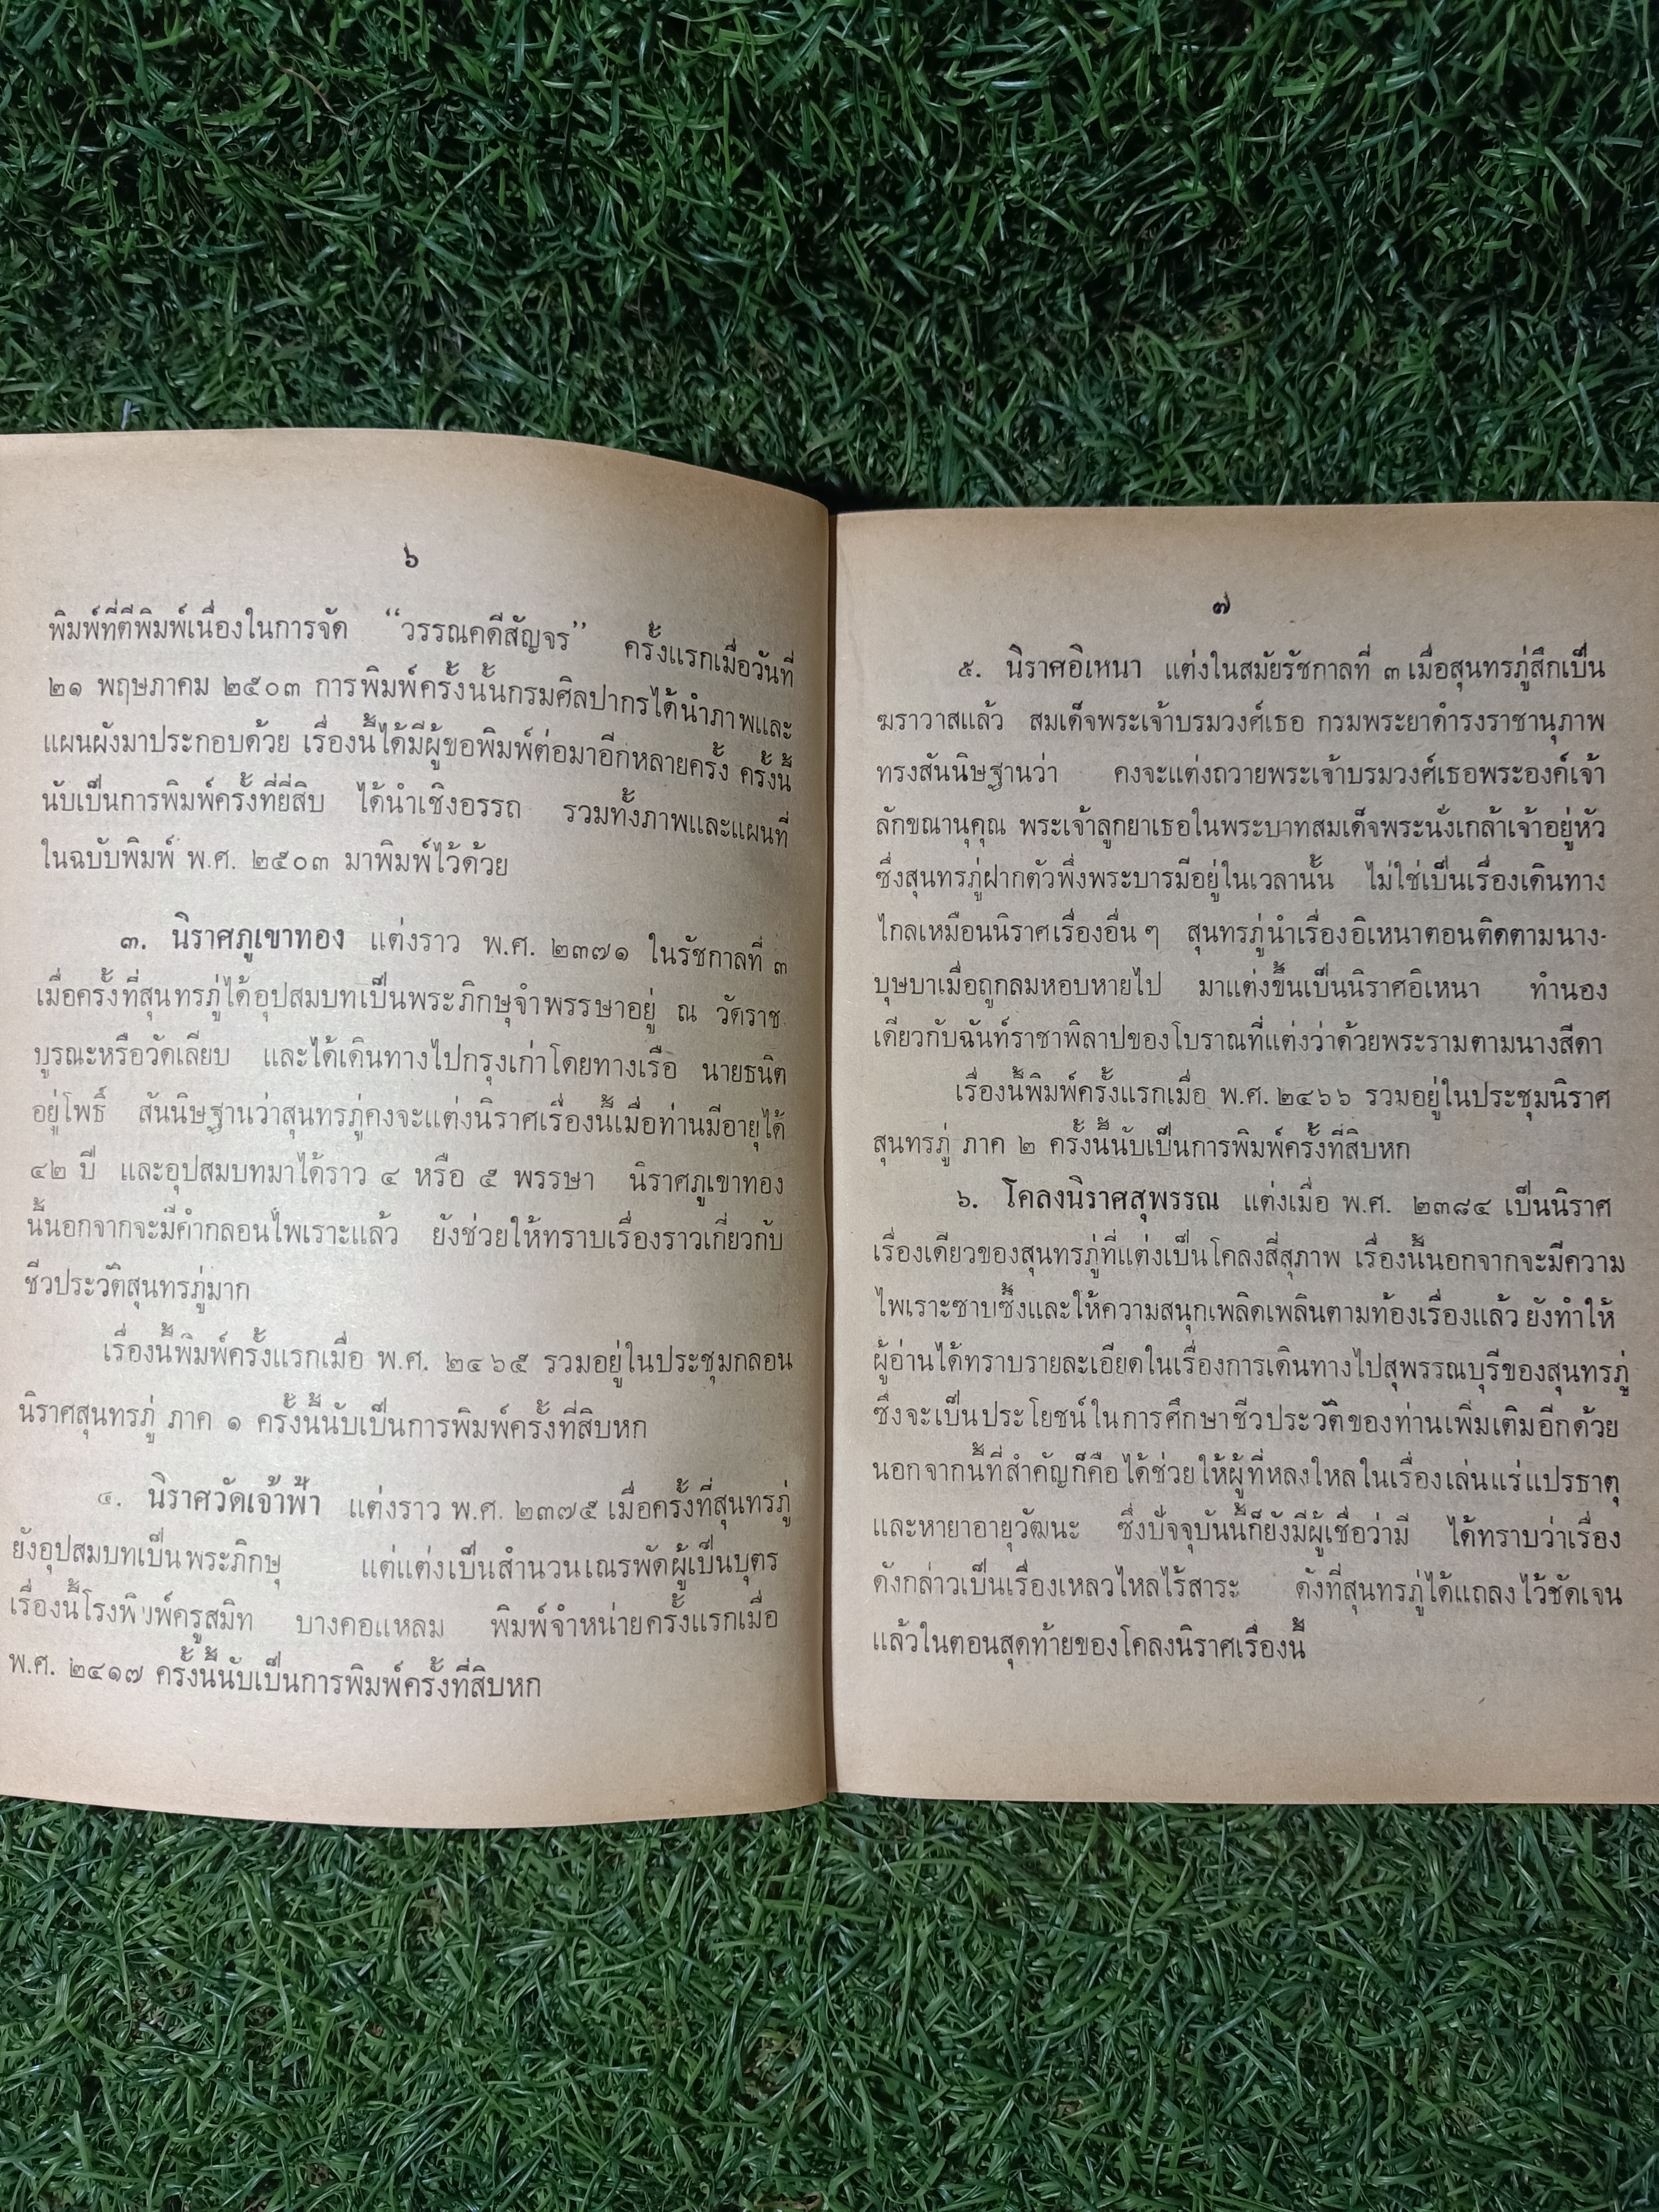 ๖
พิมพ์ที่ตีพิมพ์เนื่องในการจัด “วรรณคดีสัญจร” ครั้งแรกเมื่อวันที่
๒๑ พฤษภาคม ๒๕๐๓ การพิมพ์ครั้งนั้นกรมศิลปากรได้นำภาพและ
แผนผังมาประกอบด้วย เรื่องนี้ได้มีผู้ขอพิมพ์ต่อมาอีกหลายครั้ง ครั้งนี้
นับเป็นการพิมพ์ครั้งที่ยี่สิบ ได้นำเชิงอรรถ รวมทั้งภาพและแผนที่
ในฉบับพิมพ์ พ.ศ. ๒๕๐๓ มาพิมพ์ไว้ด้วย
๓. นิราศภูเขาทอง แต่งราว พ.ศ. ๒๓๗๑ ในรัชกาลที่ ๓
เมื่อครั้งที่สุนทรภู่ได้อุปสมบทเป็นพระภิกษุจำพรรษาอยู่ ณ วัดราช
บูรณะหรือวัดเลียบ และได้เดินทางไปกรุงเก่าโดยทางเรือ นายธนิต
อยู่โพธิ์ สันนิษฐานว่าสุนทรภู่คงจะแต่งนิราศเรื่องนี้เมื่อท่านมีอายุได้
๔๒ ปี และอุปสมบทมาได้ราว ๔ หรือ ๕ พรรษา นิราศภูเขาทอง
นี้นอกจากจะมีคำกลอนไพเราะแล้ว ยังช่วยให้ทราบเรื่องราวเกี่ยวกับ
ชีวประวัติสุนทรภู่มาก
เรื่องนี้พิมพ์ครั้งแรกเมื่อ พ.ศ. ๒๔๖๕ รวมอยู่ในประชุมกลอน
นิราศสุนทรภู่ ภาค ๑ ครั้งนี้นับเป็นการพิมพ์ครั้งที่สิบหก
๔. นิราศวัดเจ้าฟ้า แต่งราว พ.ศ. ๒๓๗๕ เมื่อครั้งที่สุนทรภู่
ยังอุปสมบทเป็นพระภิกษุ แต่แต่งเป็นสำนวนเณรพัดผู้เป็นบุตร
เรื่องนี้โรงพิมพ์ครูสมิท บางคอแหลม พิมพ์จำหน่ายครั้งแรกเมื่อ
พ.ศ. ๒๔๑๗ ครั้งนี้นับเป็นการพิมพ์ครั้งที่สิบหก
๗
๕. นิราศอิเหนา แต่งในสมัยรัชกาลที่ ๓ เมื่อสุนทรภู่สึกเป็น
ฆราวาสแล้ว สมเด็จพระเจ้าบรมวงศ์เธอ กรมพระยาดำรงราชานุภาพ
ทรงสันนิษฐานว่า คงจะแต่งถวายพระเจ้าบรมวงศ์เธอพระองค์เจ้า
ลักขณานุคุณ พระเจ้าลูกยาเธอในพระบาทสมเด็จพระนั่งเกล้าเจ้าอยู่หัว
ซึ่งสุนทรภู่ฝากตัวพึ่งพระบารมีอยู่ในเวลานั้น ไม่ใช่เป็นเรื่องเดินทาง
ไกลเหมือนนิราศเรื่องอื่น ๆ สุนทรภู่นำเรื่องอิเหนาตอนติดตามนาง-
บุษบาเมื่อถูกลมหอบหายไป มาแต่งขึ้นเป็นนิราศอิเหนา ทำนอง
เดียวกับฉันท์ราชาพิลาปของโบราณที่แต่งว่าด้วยพระรามตามนางสีดา
เรื่องนี้พิมพ์ครั้งแรกเมื่อ พ.ศ. ๒๔๖๖ รวมอยู่ในประชุมนิราศ
สุนทรภู่ ภาค ๒ ครั้งนี้นับเป็นการพิมพ์ครั้งที่สิบหก
๖. โคลงนิราศสุพรรณ แต่งเมื่อ พ.ศ. ๒๓๘๔ เป็นนิราศ
เรื่องเดียวของสุนทรภู่ที่แต่งเป็นโคลงสี่สุภาพ เรื่องนี้นอกจากจะมีความ
ไพเราะซาบซึ้งและให้ความสนุกเพลิดเพลินตามท้องเรื่องแล้ว ยังทำให้
ผู้อ่านได้ทราบรายละเอียดในเรื่องการเดินทางไปสุพรรณบุรีของสุนทรภู่
ซึ่งจะเป็นประโยชน์ในการศึกษาชีวประวัติของท่านเพิ่มเติมอีกด้วย
นอกจากนี้ที่สำคัญก็คือได้ช่วยให้ผู้ที่หลงใหลในเรื่องเล่นแร่แปรธาตุ
และหายาอายุวัฒนะ ซึ่งปัจจุบันนี้ก็ยังมีผู้เชื่อว่ามี ได้ทราบว่าเรื่อง
ดังกล่าวเป็นเรื่องเหลวไหลไร้สาระ ดังที่สุนทรภู่ได้แถลงไว้ชัดเจน
แล้วในตอนสุดท้ายของโคลงนิราศเรื่องนี้